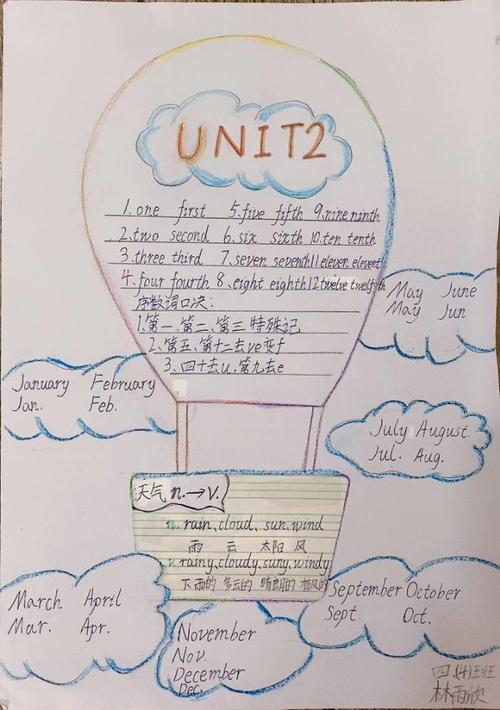 UNIT2
1. one first 5. five fifth 9. nine ninth
2. two second 6. six sixth 10. ten tenth
3. three third 7. seven seventh 11 eleven eleventh
4. four fourth 8. eight eighth 12 twelve twelfth
序数词口决:
1.第一、第二、第三特殊记
2、第五、第十二去ve变f
3、四十去u,第九去e
May June
May Jun
January February
Jan. Feb.
July August.
Jul. Aug.
天气 n.→v.
n. rain, cloud, sun, wind
雨 云 太阳 风
v. rainy, cloudy, suny, windy
下雨的 多云的 晴朗的 有风的
March April
Mar. Apr.
September October
Sept. Oct.
November
Nov.
December
Dec.
林雨欣